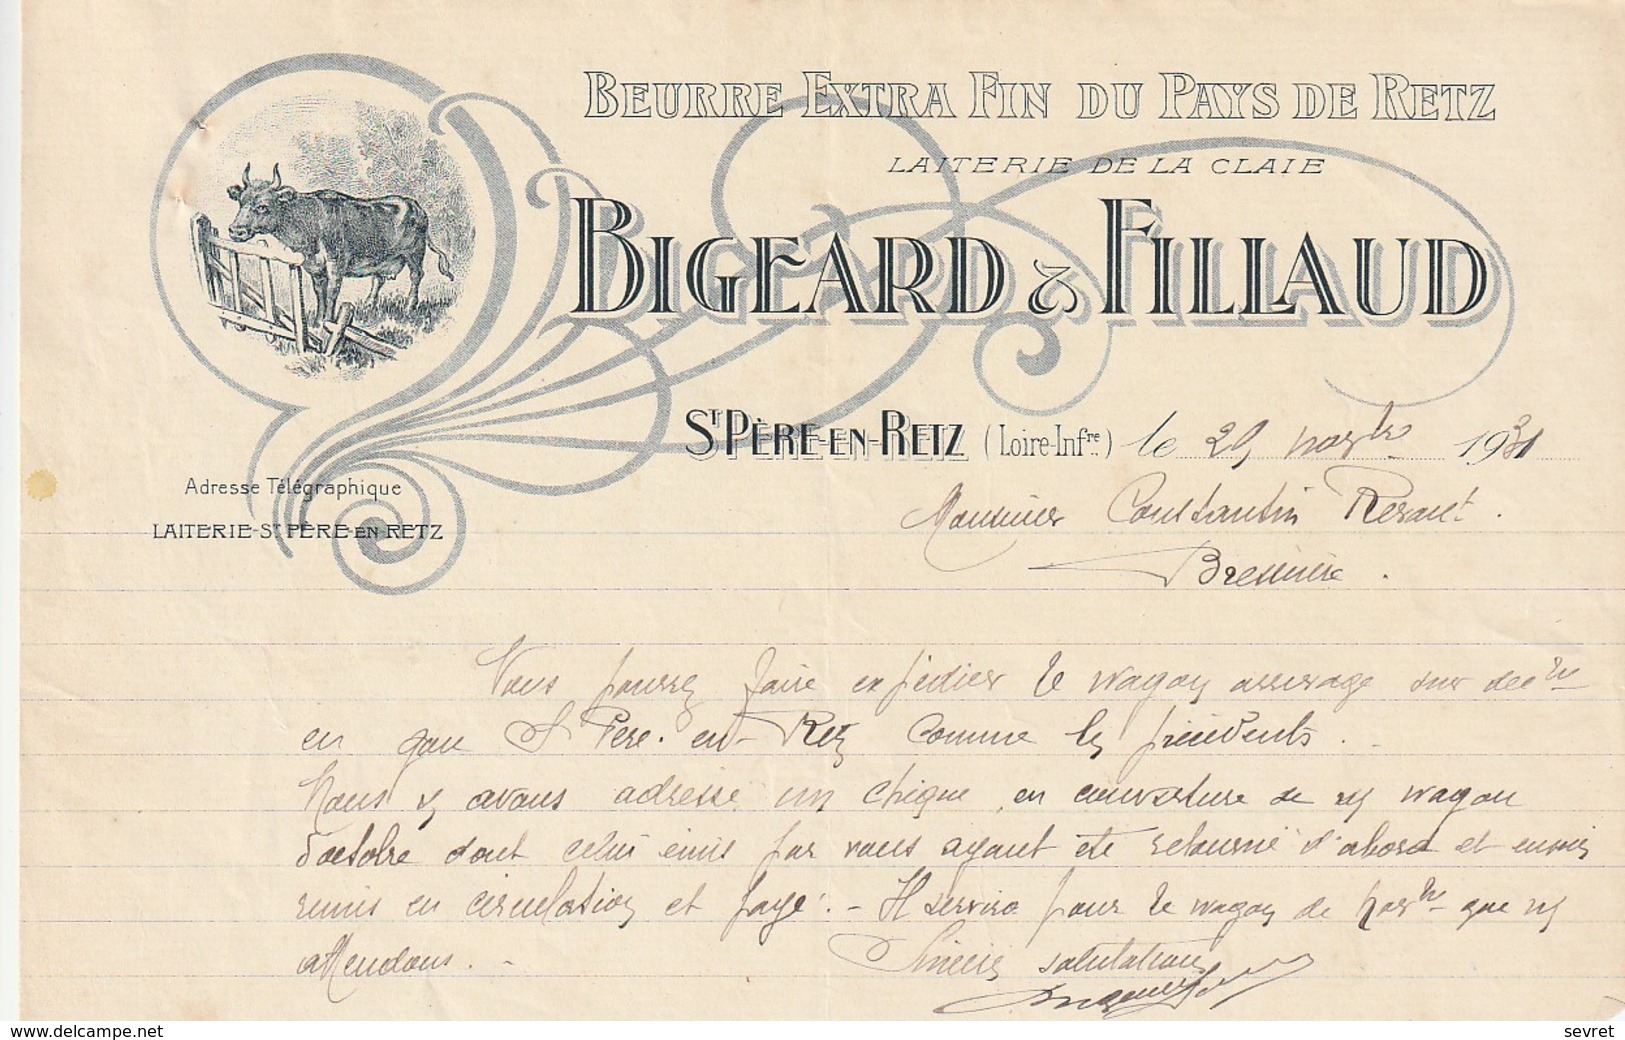 BEURRE EXTRA FIN DU PAYS DE RETZ
LAITERIE DE LA CLAIE
BIGEARD & FILLAUD
ST PÈRE-EN-RETZ (Loire-Infre) le 29 novbre 1931
Adresse Télégraphique
LAITERIE-ST PÈRE-EN-RETZ
Monsieur Constantin
Vous pourrez faire expédier le wagon sur
en gare St Père-en-Retz comme les précédents.
Nous vs avons adressé un chèque en couverture de vs wagon
d'octobre dont celui émis par vous ayant été retourné d'abord et ensuite
remis en circulation et payé. - Il servira pour le wagon de novbre que ns
attendons. -
Sincères salutations
www.delcampe.net
sevret